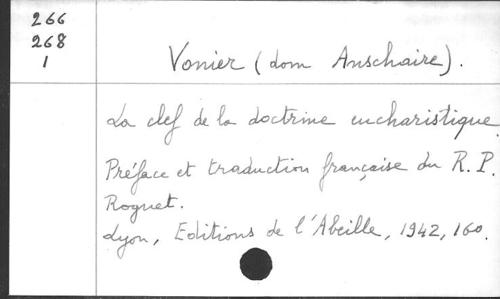 266
268
1
Vonier (dom Anschaire).
La clef de la doctrine eucharistique.
Préface et traduction française du R. P.
Roguet.
Lyon, Editions de l'Abeille, 1942, 160.